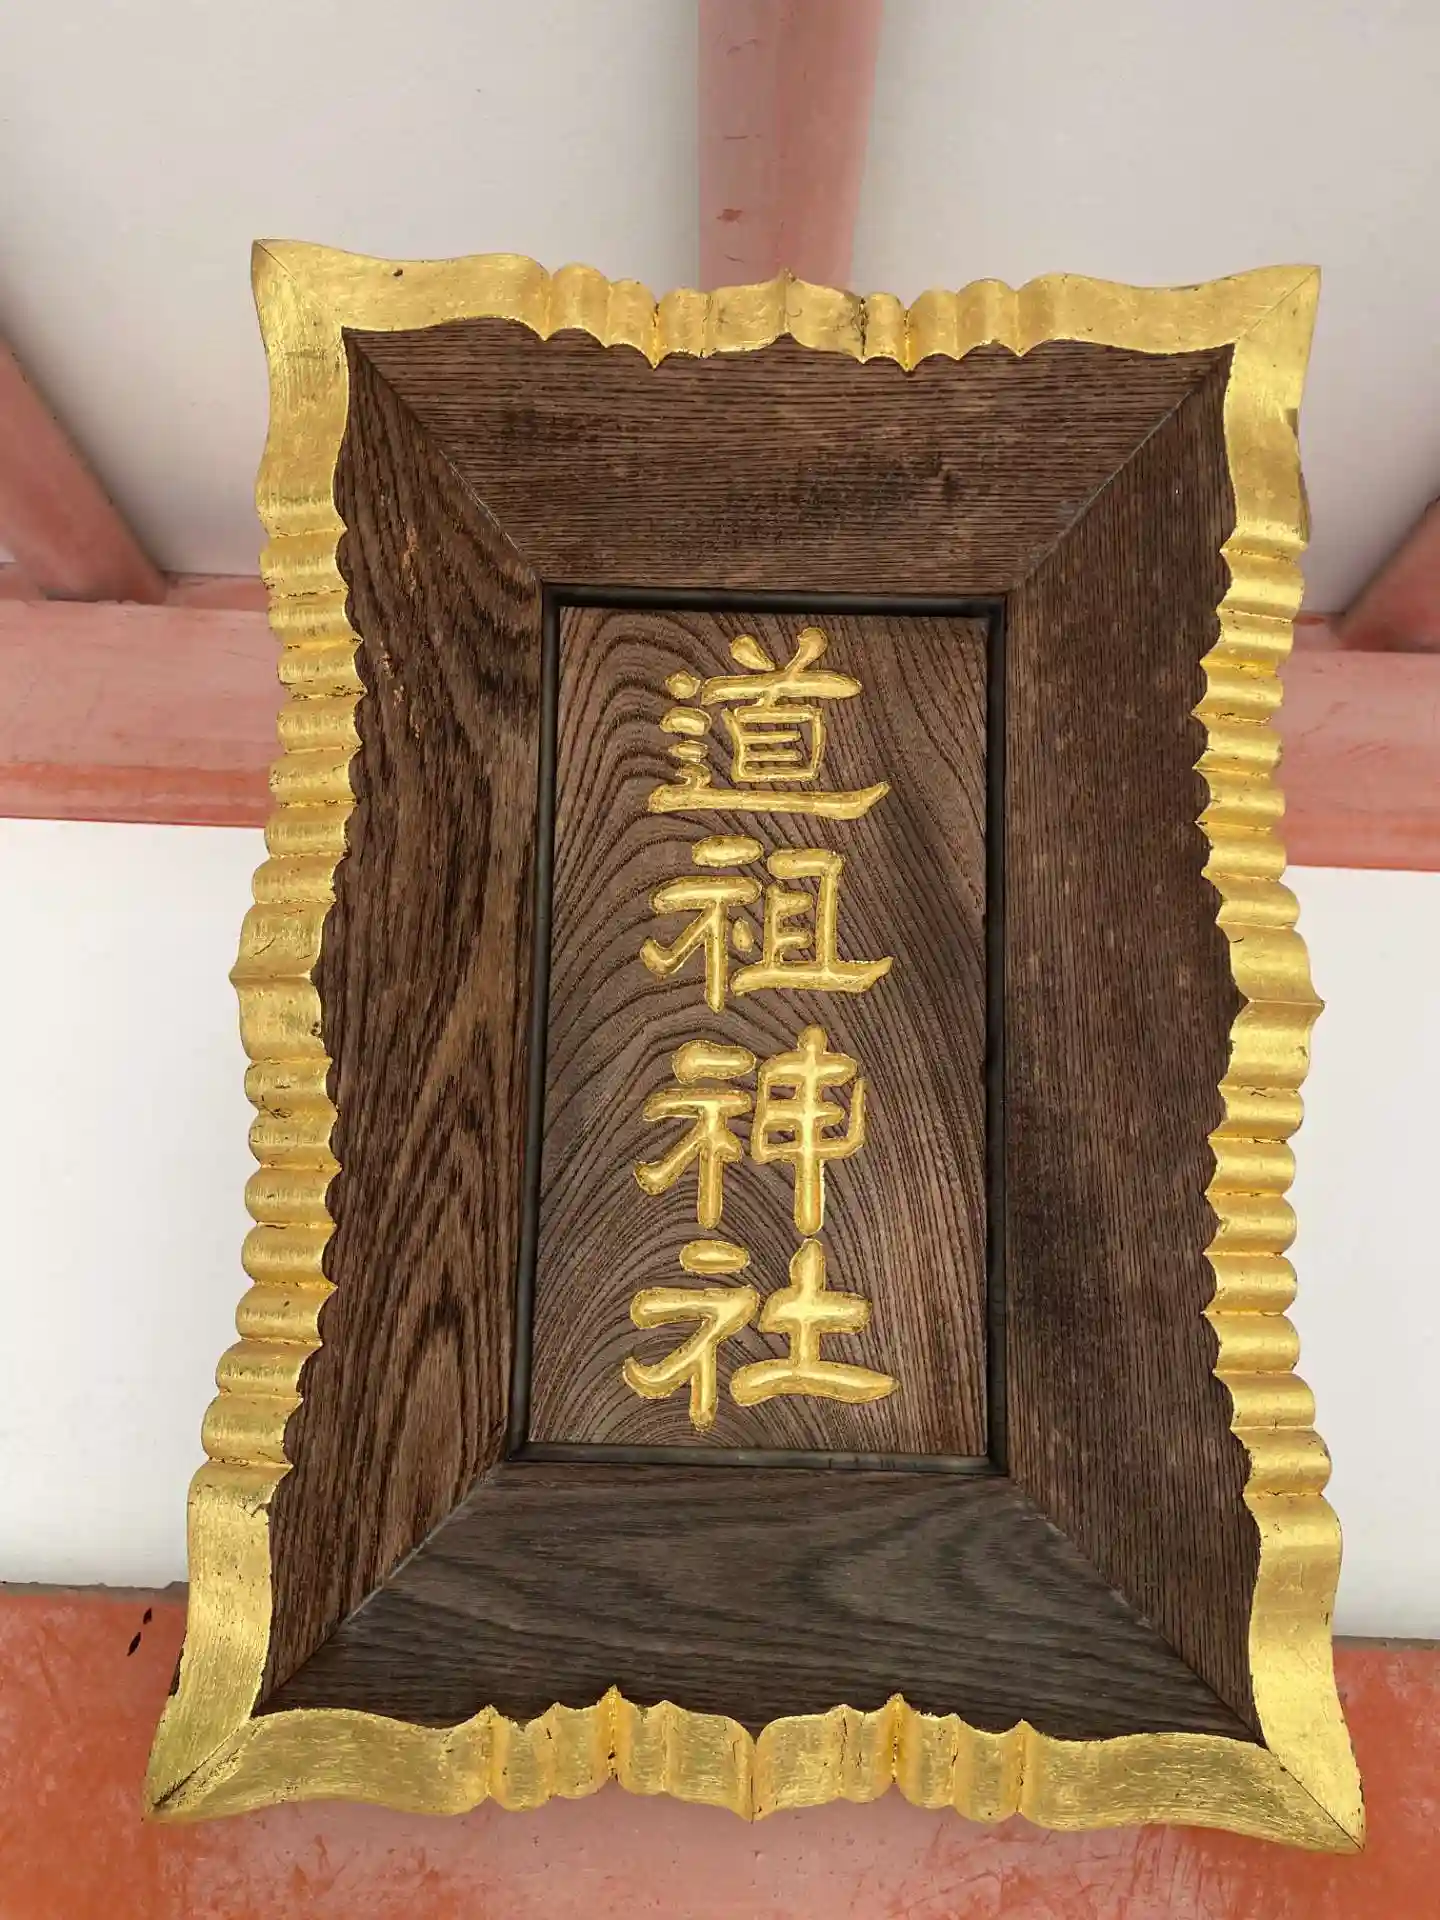 道祖神社